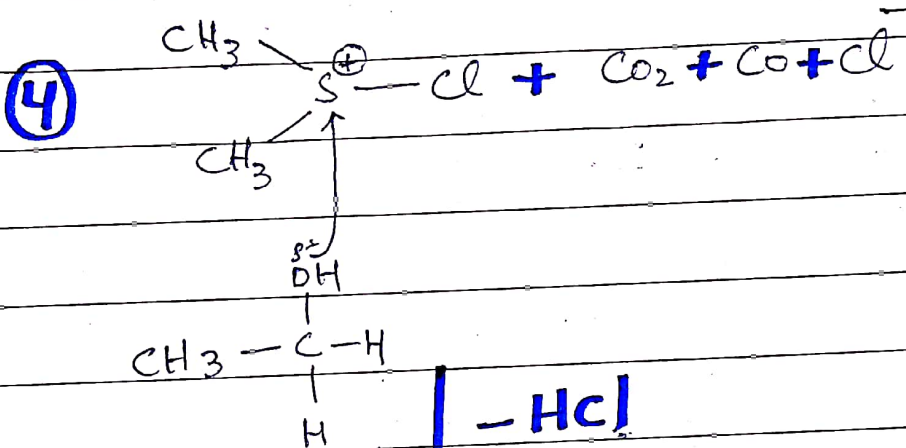 CH3
④ S⊕ — Cl + CO2 + CO + Cl⁻
CH3
δ-
OH
CH3 — C — H
H
- HCl